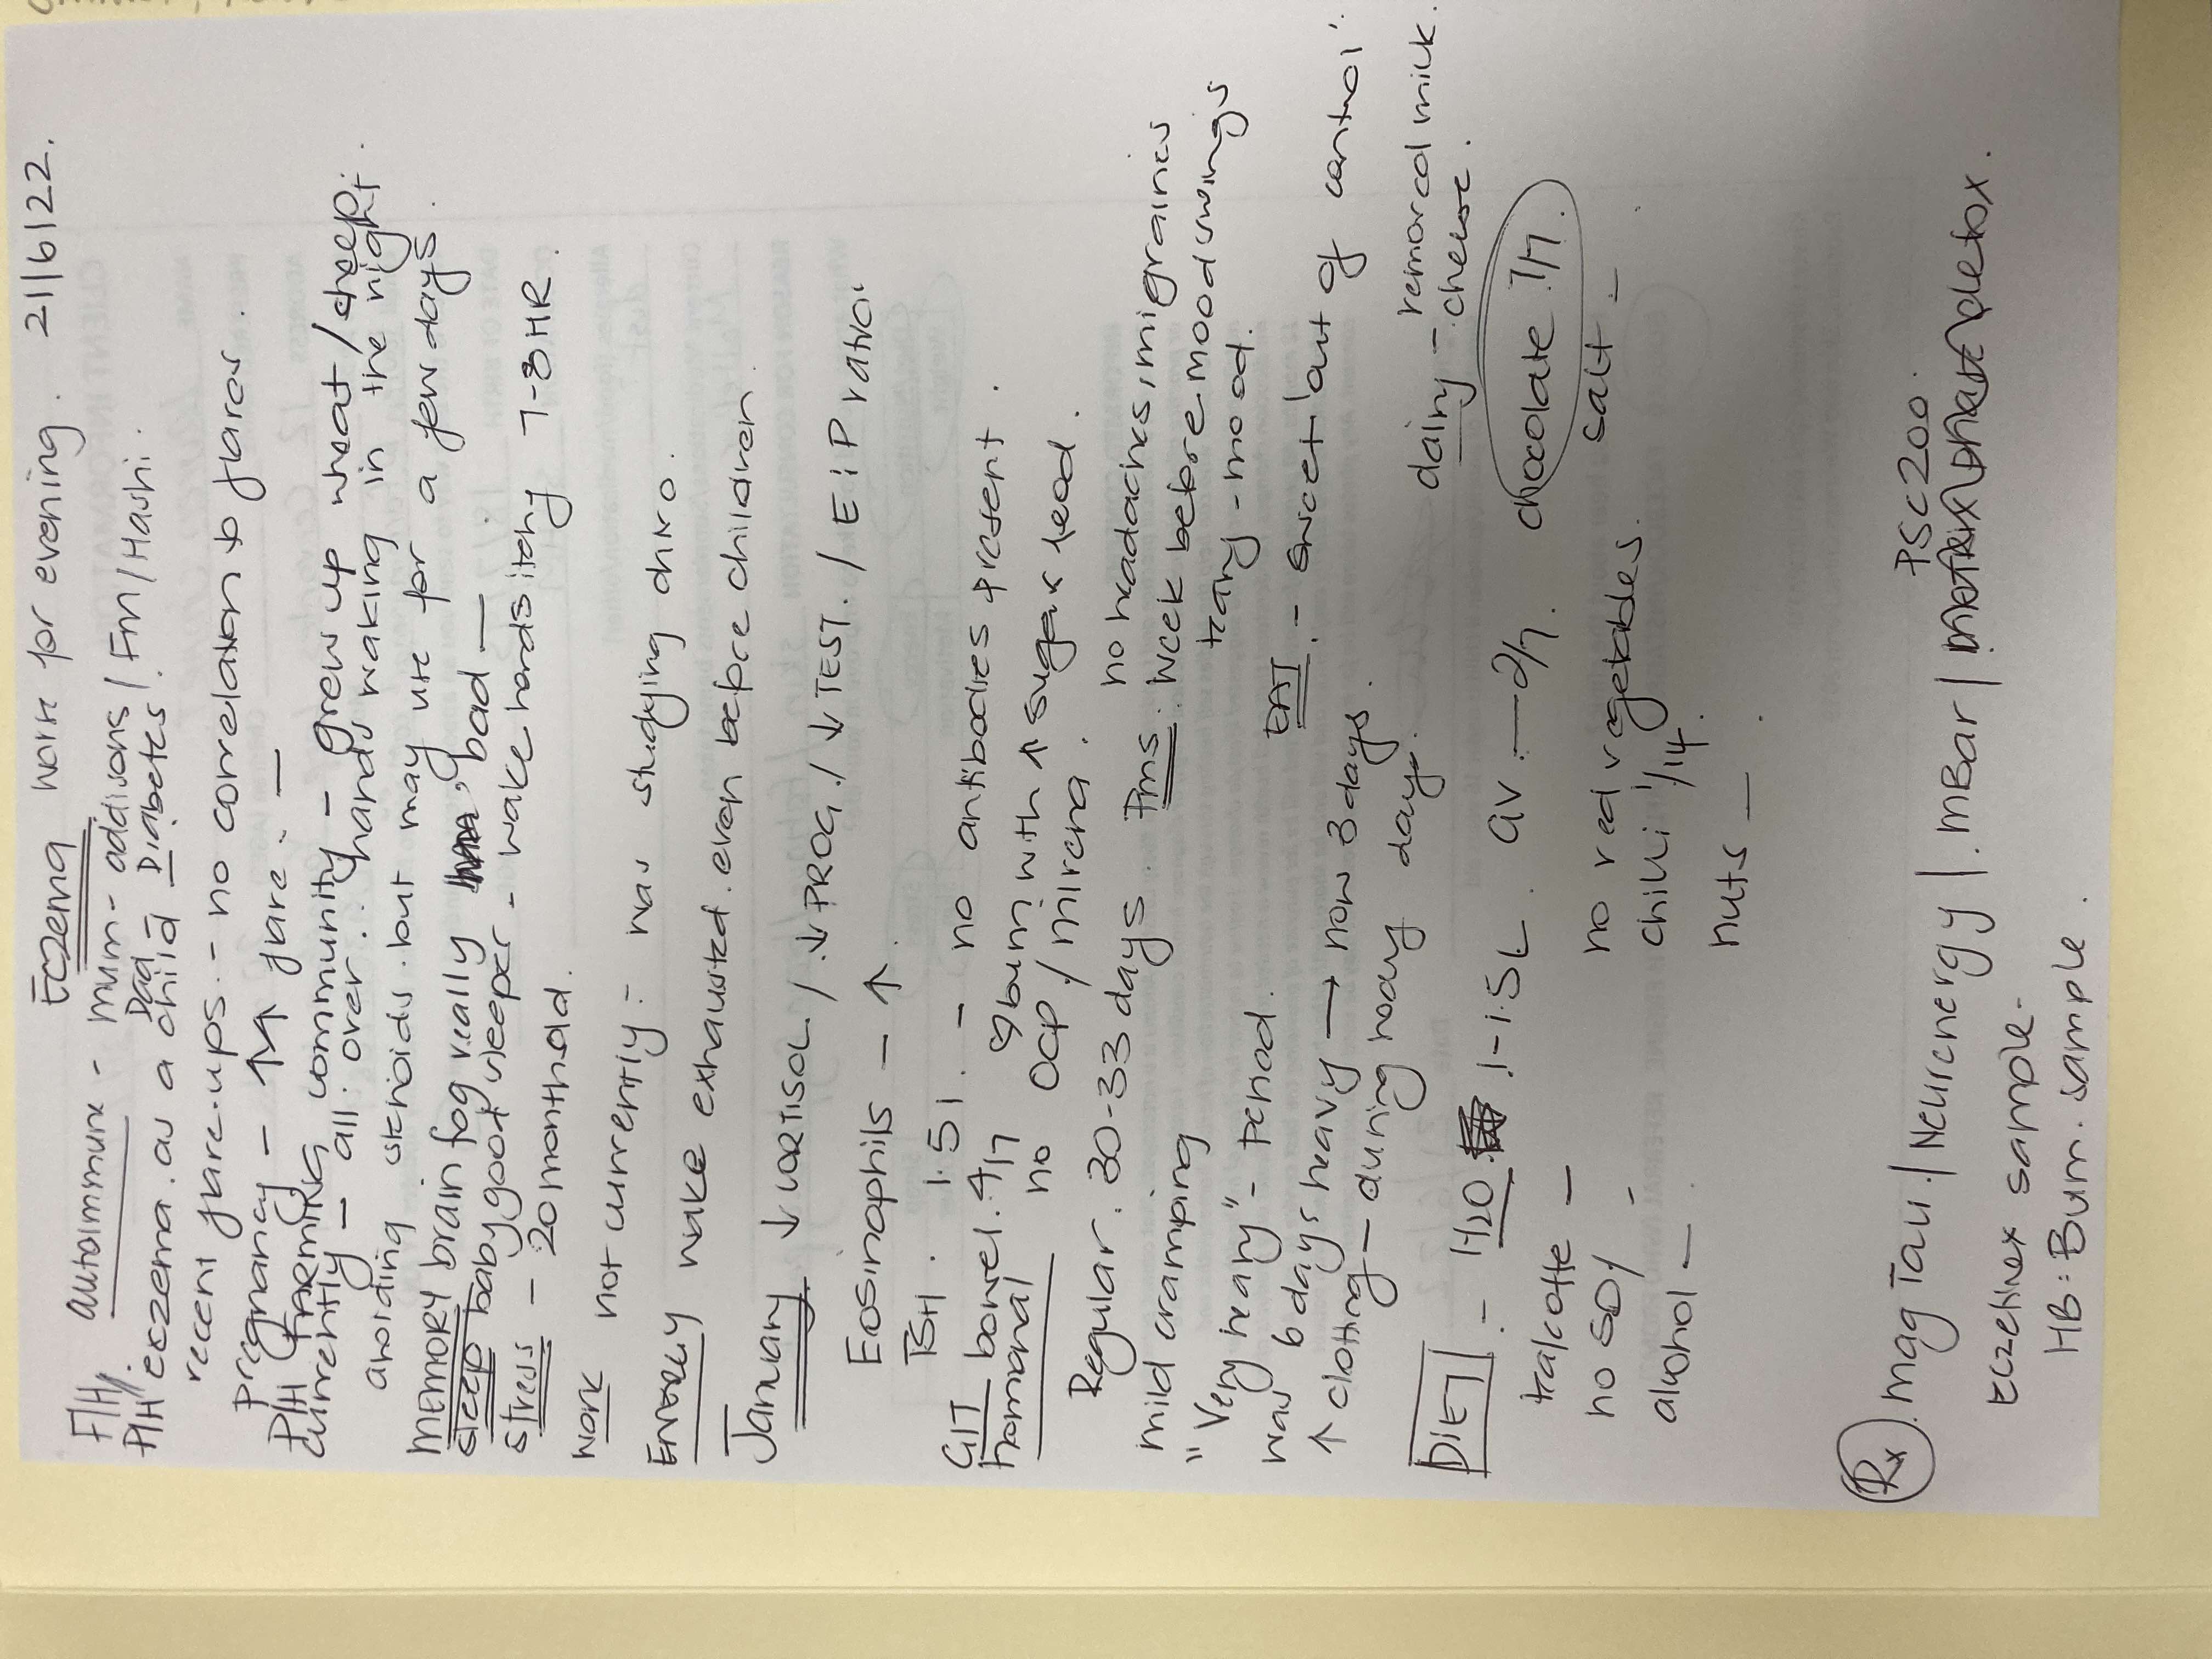 Eczema work for evening. 21/6/22.
F/H/ autoimmune - mum - addisons / Fm / Hashi.
Dad Diabetes!
P/H eczema. as a child
recent flare-ups. - no correlation to flares.
pregnancy - ↑ flare. -
P/H FARMING community - grew up wheat/sheep.
currently - all over.. hands waking in the night
avoiding steroids. but may use for a few days.
MEMORY brain fog really bad -
sleep baby good sleeper - wake hands itchy 7-8HR.
stress - 20 months old.
work not currently - was studying
ENERGY wake exhausted. even before children.
January ↓ CORTISOL / ↓ PROG. / ↓ TEST. / E:P ratio!
Eosinophils - ↑.
TSH. 1.51. - no antibodies present.
GIT bowel. 4/7 bum with ↑ sugar
hormonal no OCP / mirena.
Regular. 30-33 days. no headaches, migraines
mild cramping Pms: week before mood swings
"Very heavy" - period. teary - mood.
was 6 days heavy → now 3 days.
↑ clotting - during heavy days. EAT. - sweet 'out of control'.
DIET. - H2O. 1-1.5L. av - 2/7. dairy - removed milk.
cheese.
tea/coffe - chocolate 7/7.
no soy - no red vegetables. salt -
alcohol - chilli 1/14.
nuts -
Rx. mag Tau. / Neurenergy /. mBar / PSC200.
Eczehex sample.
HB: Bum. sample.